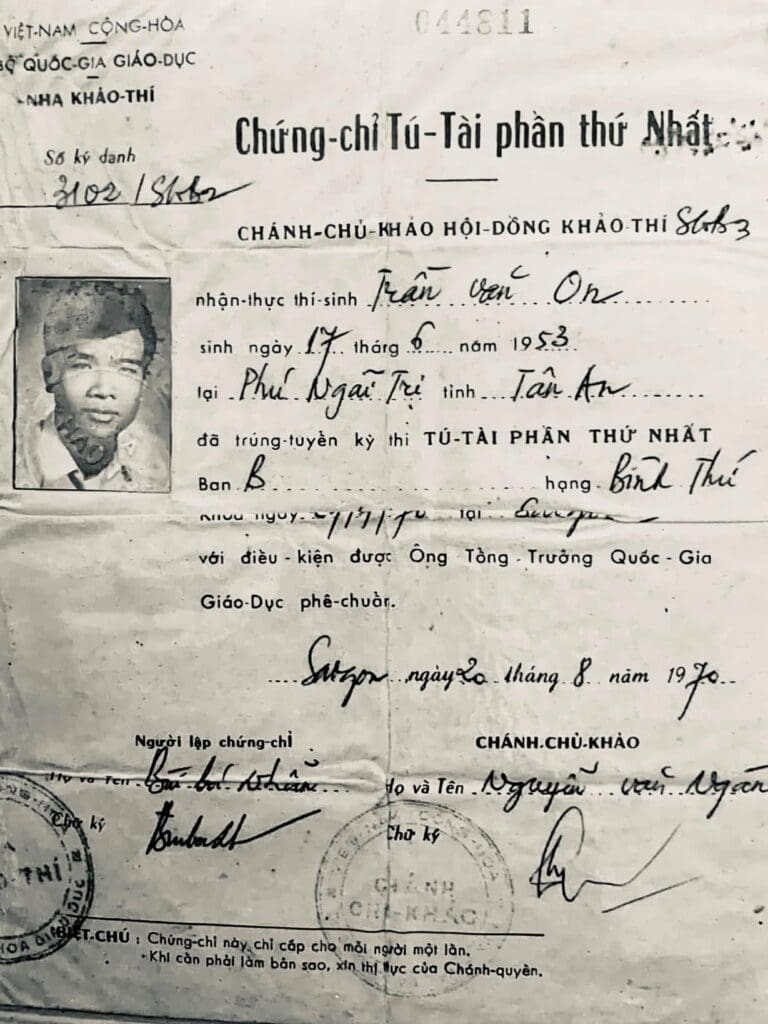 044811
VIỆT-NAM CỘNG-HÒA
BỘ QUỐC-GIA GIÁO-DỤC
NHA KHẢO-THÍ
Số ký danh
3102 /SbB2
Chứng-chỉ Tú-Tài phần thứ Nhất
CHÁNH-CHỦ-KHẢO HỘI-ĐỒNG KHẢO-THÍ SbB3
nhận-thực thí-sinh Trần văn On
sinh ngày 17 tháng 6 năm 1953
tại Phú Ngãi Trị tỉnh Tân An
đã trúng-tuyển kỳ thi TÚ-TÀI PHẦN THỨ NHẤT
Ban B hạng Bình Thứ
Khóa ngày tại Saigon
với điều-kiện được Ông Tổng Trưởng Quốc-Gia
Giáo-Dục phê-chuẩn.
Saigon ngày 20 tháng 8 năm 1970
Người lập chứng-chỉ
CHÁNH-CHỦ-KHẢO
Họ và Tên
Họ và Tên Nguyễn văn Ngân
Chữ ký
Chữ ký
CHÁNH
CHỦ-KHẢO
BIỆT-CHÚ : Chứng-chỉ này chỉ cấp cho mỗi người một lần.
- Khi cần phải làm bản sao, xin thị thực của Chánh-quyền.